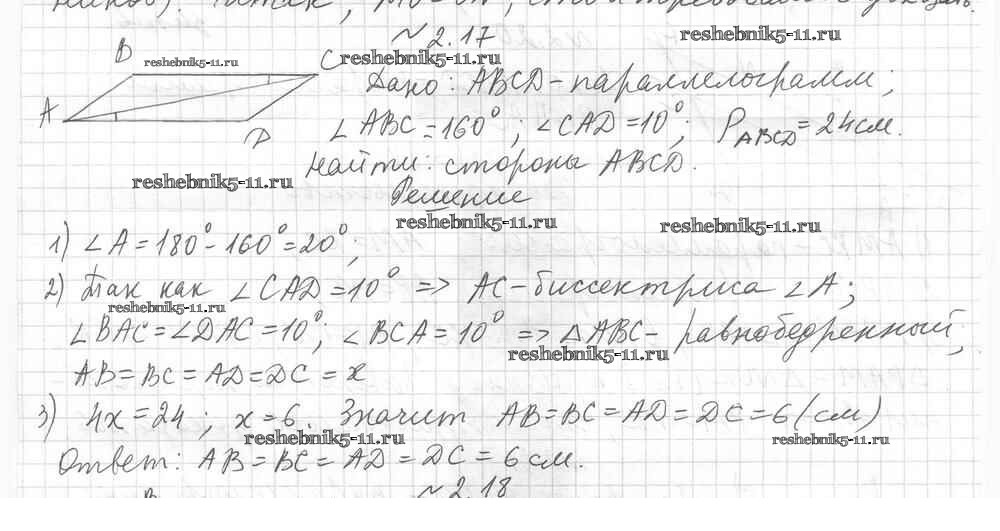 № 2.17
reshebnik5-11.ru
B
reshebnik5-11.ru
C
reshebnik5-11.ru
Дано: ABCD - параллелограмм;
A
D
∠ABC = 160°; ∠CAD = 10°; P_ABCD = 24 см.
Найти: стороны ABCD.
reshebnik5-11.ru
Решение
reshebnik5-11.ru
reshebnik5-11.ru
1) ∠A = 180° - 160° = 20°;
2) Так как ∠CAD = 10° => AC - биссектриса ∠A;
reshebnik5-11.ru
∠BAC = ∠DAC = 10°; ∠BCA = 10° => △ABC - равнобедренный;
reshebnik5-11.ru
AB = BC = AD = DC = x
3) 4x = 24; x = 6. Значит AB = BC = AD = DC = 6 (см)
reshebnik5-11.ru
reshebnik5-11.ru
Ответ: AB = BC = AD = DC = 6 см.
B
№ 2.18